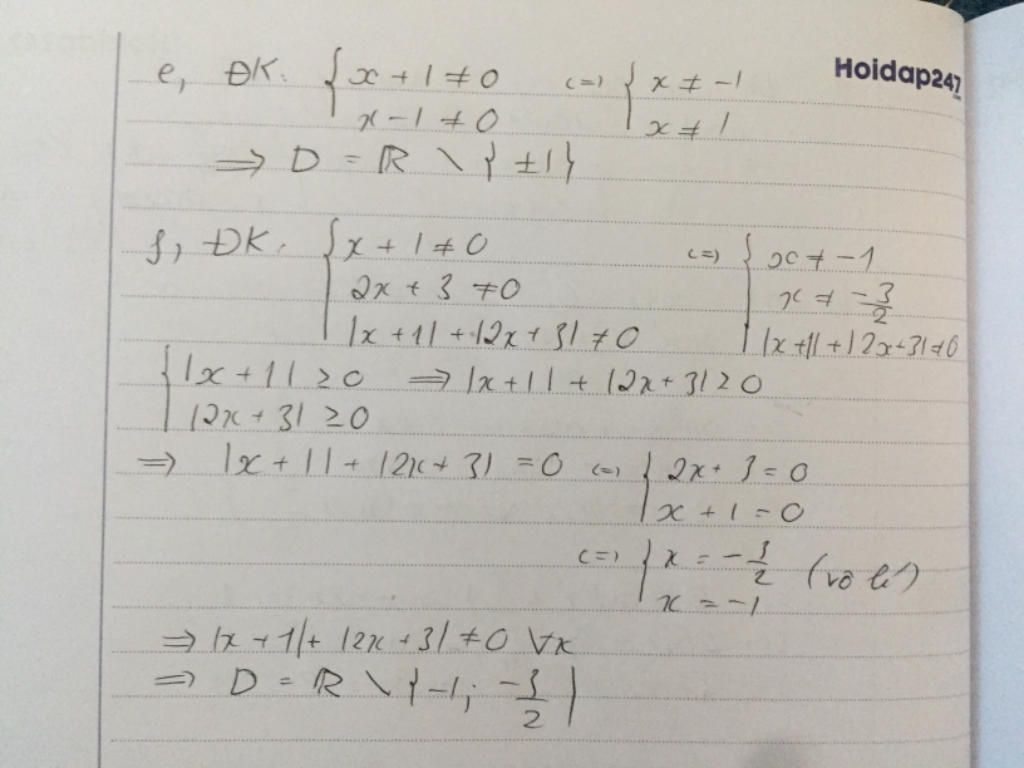 Hoidap247
e, ĐK. { x + 1 ≠ 0 (=) { x ≠ -1
x - 1 ≠ 0 x ≠ 1
=> D = ℝ \ { ±1 }
f, ĐK. { x + 1 ≠ 0 (=) { x ≠ -1
2x + 3 ≠ 0 x ≠ -3/2
|x + 1| + |2x + 3| ≠ 0 |x + 1| + |2x + 3| ≠ 0
{ |x + 1| ≥ 0 => |x + 1| + |2x + 3| ≥ 0
|2x + 3| ≥ 0
=> |x + 1| + |2x + 3| = 0 (=) { 2x + 3 = 0
x + 1 = 0
(=) { x = -3/2 (vô lí)
x = -1
=> |x + 1| + |2x + 3| ≠ 0 ∀x
=> D = ℝ \ { -1; -3/2 }